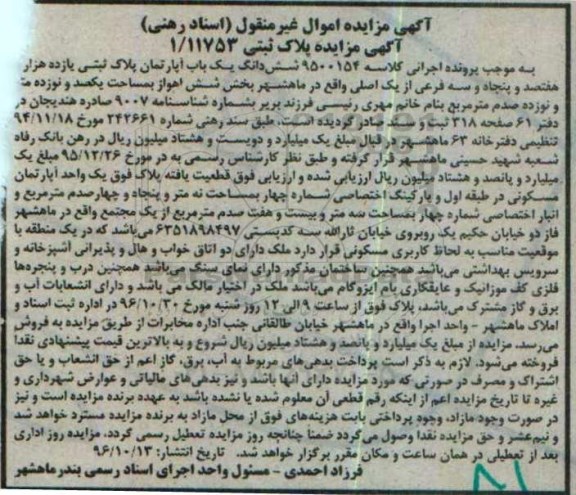 آگهی مزایده اموال غیرمنقول (اسناد رهنی)
آگهی مزایده پلاک ثبتی ۱/۱۱۷۵۳
به موجب پرونده اجرائی کلاسه ۹۵۰۰۱۵۴ شش‌دانگ یک باب آپارتمان پلاک ثبتی یازده هزار
هفتصد و پنجاه و سه فرعی از یک اصلی واقع در ماهشهر بخش شش اهواز بمساحت یکصد و نوزده متر
و نوزده صدم مترمربع بنام خانم مهری رئیسی فرزند بریر بشماره شناسنامه ۹۰۰۷ صادره هندیجان در
دفتر ۶۱ صفحه ۳۱۸ ثبت و سند صادر گردیده است، طبق سند رهنی شماره ۲۴۲۶۶۱ مورخ ۹۴/۱۱/۱۸
تنظیمی دفترخانه ۶۳ ماهشهر در قبال مبلغ یک میلیارد و دویست و هشتاد میلیون ریال در رهن بانک رفاه
شعبه شهید حسینی ماهشهر قرار گرفته و طبق نظر کارشناس رسمی به در مورخ ۹۵/۱۲/۲۶ مبلغ یک
میلیارد و پانصد و هشتاد میلیون ریال ارزیابی شده و ارزیابی فوق قطعیت یافته پلاک فوق یک واحد آپارتمان
مسکونی در طبقه اول و پارکینگ اختصاصی شماره چهار بمساحت نه متر و پنجاه و چهارصدم مترمربع و
انبار اختصاصی شماره چهار بمساحت سه متر و بیست و هفت صدم مترمربع از یک مجتمع واقع در ماهشهر
فاز دو خیابان حکیم یک روبروی خیابان ثارالله سه کدپستی ۶۳۵۱۸۹۸۴۹۷ می‌باشد که در یک منطقه با
موقعیت مناسب به لحاظ کاربری مسکونی قرار دارد ملک دارای دو اتاق خواب و هال و پذیرائی آشپزخانه و
سرویس بهداشتی می‌باشد همچنین ساختمان مذکور دارای نمای سنگ می‌باشد همچنین درب و پنجرهها
فلزی کف موزائیک و عایقکاری بام ایزوگام می‌باشد ملک در اختیار مالک می باشد و دارای انشعابات آب و
برق و گاز مشترک می‌باشد، پلاک فوق از ساعت ۹ الی ۱۲ روز شنبه مورخ ۹۶/۱۰/۳۰ در اداره ثبت اسناد و
املاک ماهشهر - واحد اجرا واقع در ماهشهر خیابان طالقانی جنب اداره مخابرات از طریق مزایده به فروش
می‌رسد، مزایده از مبلغ یک میلیارد و پانصد و هشتاد میلیون ریال شروع و به بالاترین قیمت پیشنهادی نقدا
فروخته می‌شود، لازم به ذکر است پرداخت بدهی‌های مربوط به آب، برق، گاز اعم از حق انشعاب و یا حق
اشتراک و مصرف در صورتی که مورد مزایده دارای آنها باشد و نیز بدهی‌های مالیاتی و عوارض شهرداری و
غیره تا تاریخ مزایده اعم از اینکه رقم قطعی آن معلوم شده یا نشده باشد به عهده برنده مزایده است و نیز
در صورت وجود مازاد، وجوه پرداختی بابت هزینه‌های فوق از محل مازاد به برنده مزایده مسترد خواهد شد
و نیم‌عشر و حق مزایده نقدا وصول می‌گردد ضمنا چنانچه روز مزایده تعطیل رسمی گردد، مزایده روز اداری
بعد از تعطیلی در همان ساعت و مکان مقرر برگزار خواهد شد. تاریخ انتشار: ۹۶/۱۰/۱۳
فرزاد احمدی - مسئول واحد اجرای اسناد رسمی بندرماهشهر